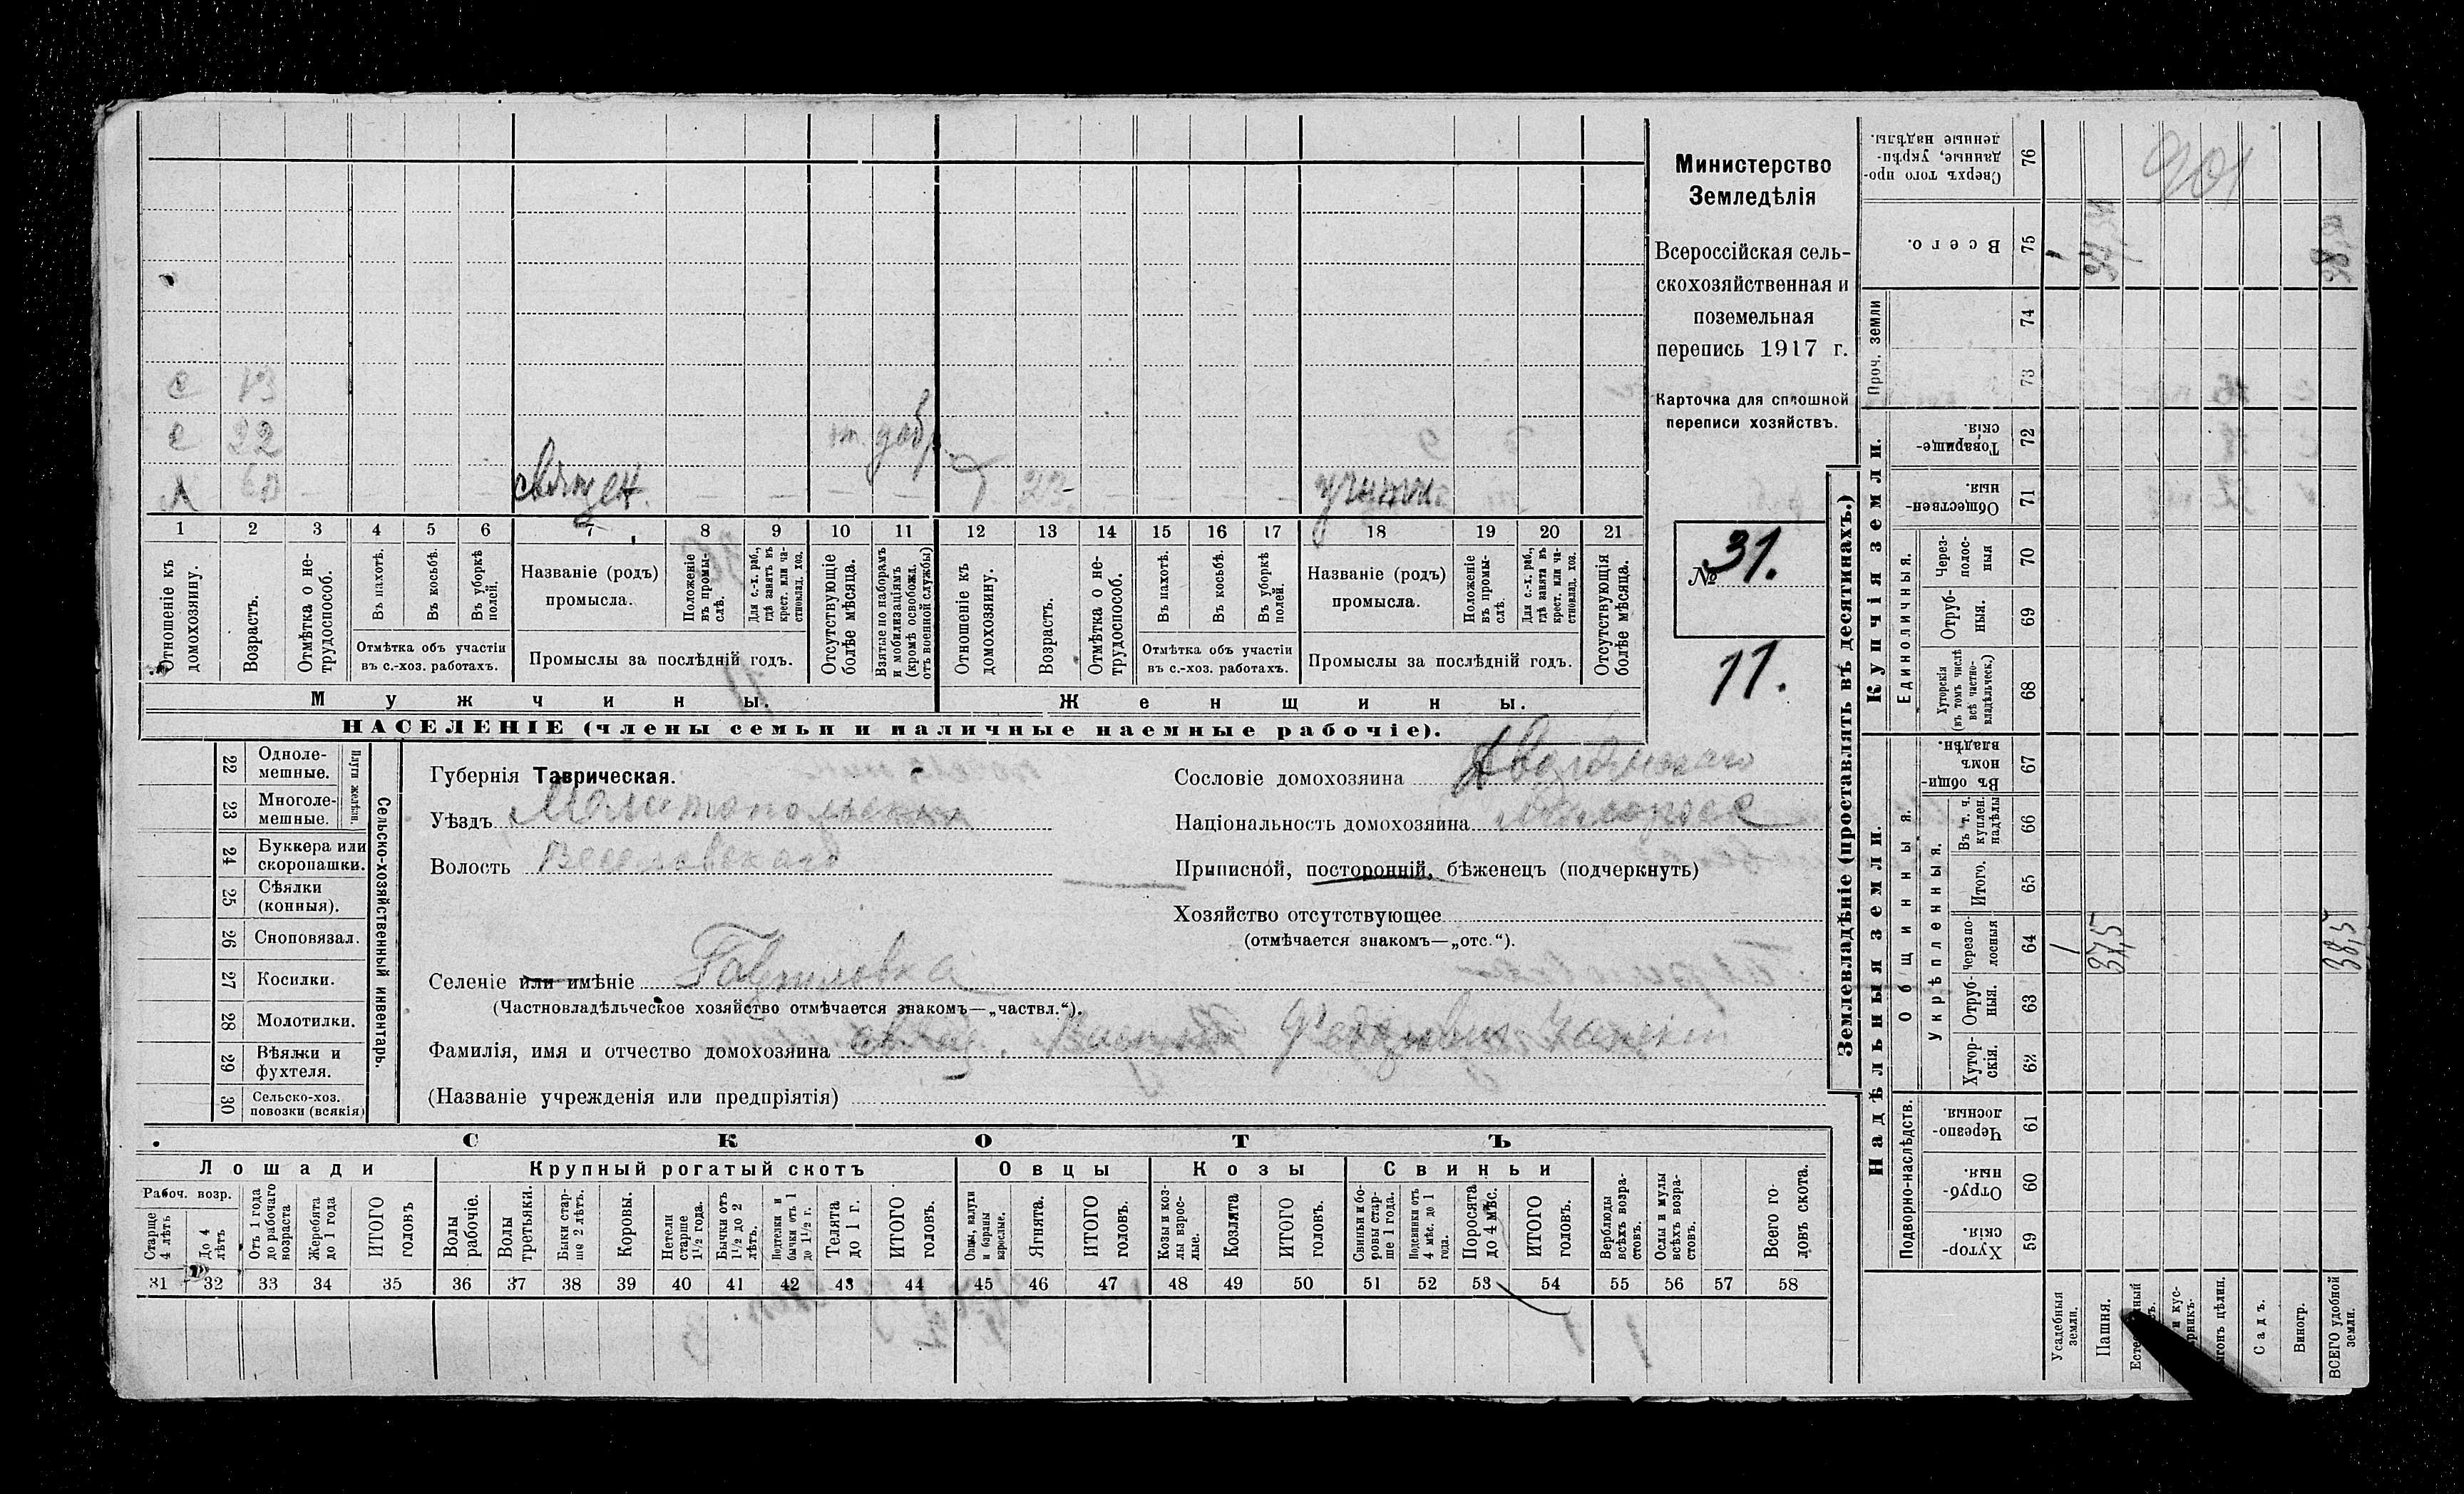 Министерство
Земледѣлія
Всероссійская сель-
скохозяйственная и
поземельная
перепись 1917 г.
Карточка для сплошной
переписи хозяйствъ.
№ 31.
11.
с 13
с 22
священ.
23
1 2 3 4 5 6 7 8 9 10 11 12 13 14 15 16 17 18 19 20 21
Отношеніе къ домохозяину.
Возрастъ.
Отмѣтка о не-трудоспособ.
Въ пахотѣ.
Въ косьбѣ.
Въ уборкѣ полей.
Отмѣтка объ участіи
въ с.-хоз. работахъ.
Названіе (родъ)
промысла.
Положеніе въ промы-слѣ.
Для с.-х. раб., гдѣ занятъ въ крест. или ча-стновлад. хоз.
Промыслы за послѣдній годъ.
Отсутствующіе болѣе мѣсяца.
Взятые по наборамъ и мобилизаціямъ (кромѣ освобожд. отъ военной службы)
Отношеніе къ домохозяину.
Возрастъ.
Отмѣтка о не-трудоспособ.
Въ пахотѣ.
Въ косьбѣ.
Въ уборкѣ полей.
Отмѣтка объ участіи
въ с.-хоз. работахъ.
Названіе (родъ)
промысла.
Положеніе въ промы-слѣ.
Для с.-х. раб., гдѣ занята въ крест. или ча-стновлад. хоз.
Промыслы за послѣдній годъ.
Отсутствующія болѣе мѣсяца.
Мужчины. Женщины.
НАСЕЛЕНІЕ (члены семьи и наличные наемные рабочіе).
22 Одноле-мешные.
23 Многоле-мешные.
Плуги желѣзн.
24 Буккера или скоропашки.
25 Сѣялки (конныя).
26 Сноповязал.
27 Косилки.
28 Молотилки.
29 Вѣялки и фухтеля.
30 Сельско-хоз. повозки (всякія)
Сельско-хозяйственный инвентарь.
Губернія Таврическая.
Уѣздъ Мелитопольскаго
Волость Веселовскаго
Селеніе или имѣніе Гавриловка
(Частновладѣльческое хозяйство отмѣчается знакомъ—„частвл.“).
Фамилія, имя и отчество домохозяина Федорович
(Названіе учрежденія или предпріятія)
Сословіе домохозяина Дворянскаго
Національность домохозяина
Приписной, посторонній, бѣженецъ (подчеркнуть)
Хозяйство отсутствующее
(отмѣчается знакомъ—„отс.“).
СКОТЪ
Лошади
Рабоч. возр.
Старше 4 лѣтъ
До 4 лѣтъ
Отъ 1 года до рабочаго возраста
Жеребята до 1 года
ИТОГО головъ
Крупный рогатый скотъ
Волы рабочіе.
Волы третьяки.
Быки стар-ше 2 лѣтъ.
Коровы.
Нетели старше 1½ года.
Бычки отъ 1½ до 2 лѣтъ.
Подтелки и бычки отъ 1 до 1½ г.
Телята до 1 г.
ИТОГО головъ.
Овцы
Овцы, валухи и бараны взрослые.
Ягнята.
ИТОГО головъ.
Козы
Козы и коз-лы взрос-лые.
Козлята
ИТОГО головъ.
Свиньи
Свиньи и бо-ровы стар-ше 1 года.
Подсвинки отъ 4 мѣс. до 1 года.
Поросята до 4 мѣс.
ИТОГО головъ.
Верблюды всѣхъ возра-стовъ.
Ослы и мулы всѣхъ возра-стовъ.
Всего го-ловъ скота.
31 32 33 34 35 36 37 38 39 40 41 42 43 44 45 46 47 48 49 50 51 52 53 54 55 56 57 58
Землевладѣніе (проставлять въ десятинахъ.)
Купчія земли.
Надѣльныя земли.
Сверхъ того про-данные, укрѣп-ленные надѣлы. 76
Всего. 75
Проч. земли 74 73
Товарище-скія. 72
Обществен-ныя. 71
Единоличныя.
Через-полос-ныя 70
Отруб-ныя. 69
Хуторскія (въ томъ числѣ всѣ частно-владѣльческ.) 68
Общинныя.
Въ общин-номъ владѣн. 67
Укрѣпленныя.
Въ т. ч. куплен. надѣлы 66
Итого. 65
Черезпо-лосныя 64
Отруб-ныя. 63
Хутор-скія. 62
Подворно-наслѣдств.
Черезпо-лосныя. 61
Отруб-ныя. 60
Хутор-скія. 59
901
1 37,5 38,5
Усадебныя земли.
Пашня.
Садъ.
Виногр.
ВСЕГО удобной земли.